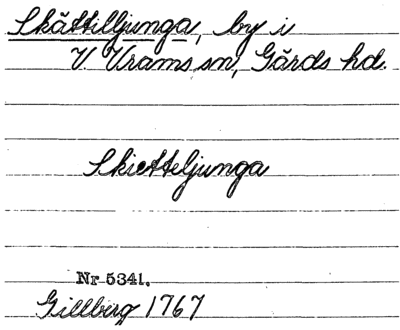 Skättilljunga, by i
V. Vrams sn, Gärds hd.
Skietteljunga
Nr 5341.
Gillberg 1767